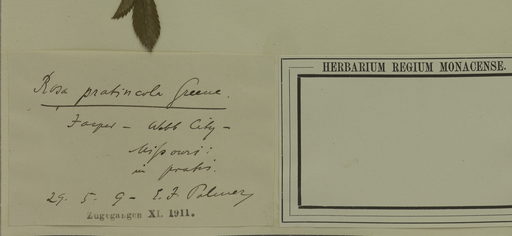 Rosa pratincola Greene.
Jasper – Webb City –
Missouri:
in pratis.
29. 5. 9 – E. J. Palmer
Zugegangen XI. 1911.
HERBARIUM REGIUM MONACENSE.